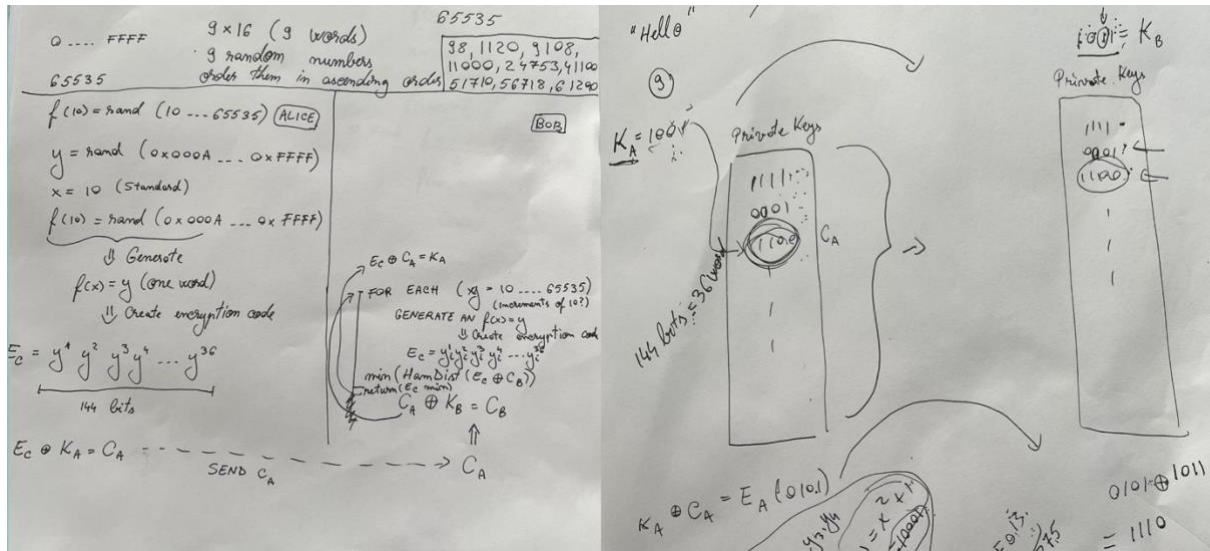 0 .... FFFF
65535
9×16 (9 words)
9 random numbers
order them in ascending order
65535
98, 1120, 9108,
11000, 24753, 41100
51710, 56718, 61290
f(10) = rand (10 ... 65535) ALICE
y = rand (0x000A ... 0xFFFF)
x = 10 (Standard)
f(10) = rand (0x000A ... 0xFFFF)
⇓ Generate
f(x) = y (one word)
⇓ Create encryption code
E_C = y¹ y² y³ y⁴ ... y³⁶
144 bits
E_C ⊕ K_A = C_A
SEND C_A
BOB
E_C ⊕ C_A = K_A
FOR EACH ( = 10 .... 65535)
(increments of 10?)
GENERATE AN f(x) = y
⇓ Create encryption code
E_C =
min (HamDist (E_C ⊕ C_B))
return (E_C min)
C_A ⊕ K_B = C_B
⇑
C_A
"Hello"
9
K_A = 1001
Private Keys
1111
0001
1100
C_A
144 bits = 36
K_A ⊕ C_A = E_A (0101)
= K_B
Private Keys
1111
0001
1100
0101 ⊕ 1011
= 1110